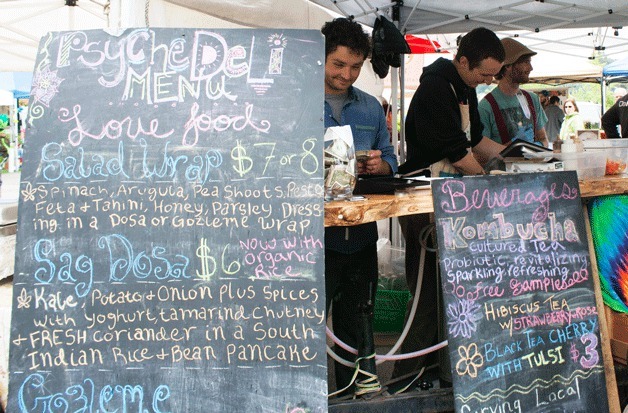 PSYCHEDELi
MENU
Love food
Salad Wrap $7 or 8
Spinach, Arugula, Pea Shoots, Pesto
Feta + Tahini, Honey, Parsley Dress-
ing, in a Dosa or Gozleme Wrap
Sag Dosa $6 NOW WITH
organic
Rice
Kale, Potato + Onion Plus Spices
with yoghurt, tamarind Chutney
+ FRESH coriander in a South
Indian Rice + Bean Pancake
Gozleme
Beverages
Kombucha
Cultured Tea
Probiotic, revitalizing
Sparkling, refreshing
Free Samples
HIBISCUS TEA
W/ STRAWBERRY + ROSE
BLACK TEA CHERRY
WITH TULSI $3
Serving Local